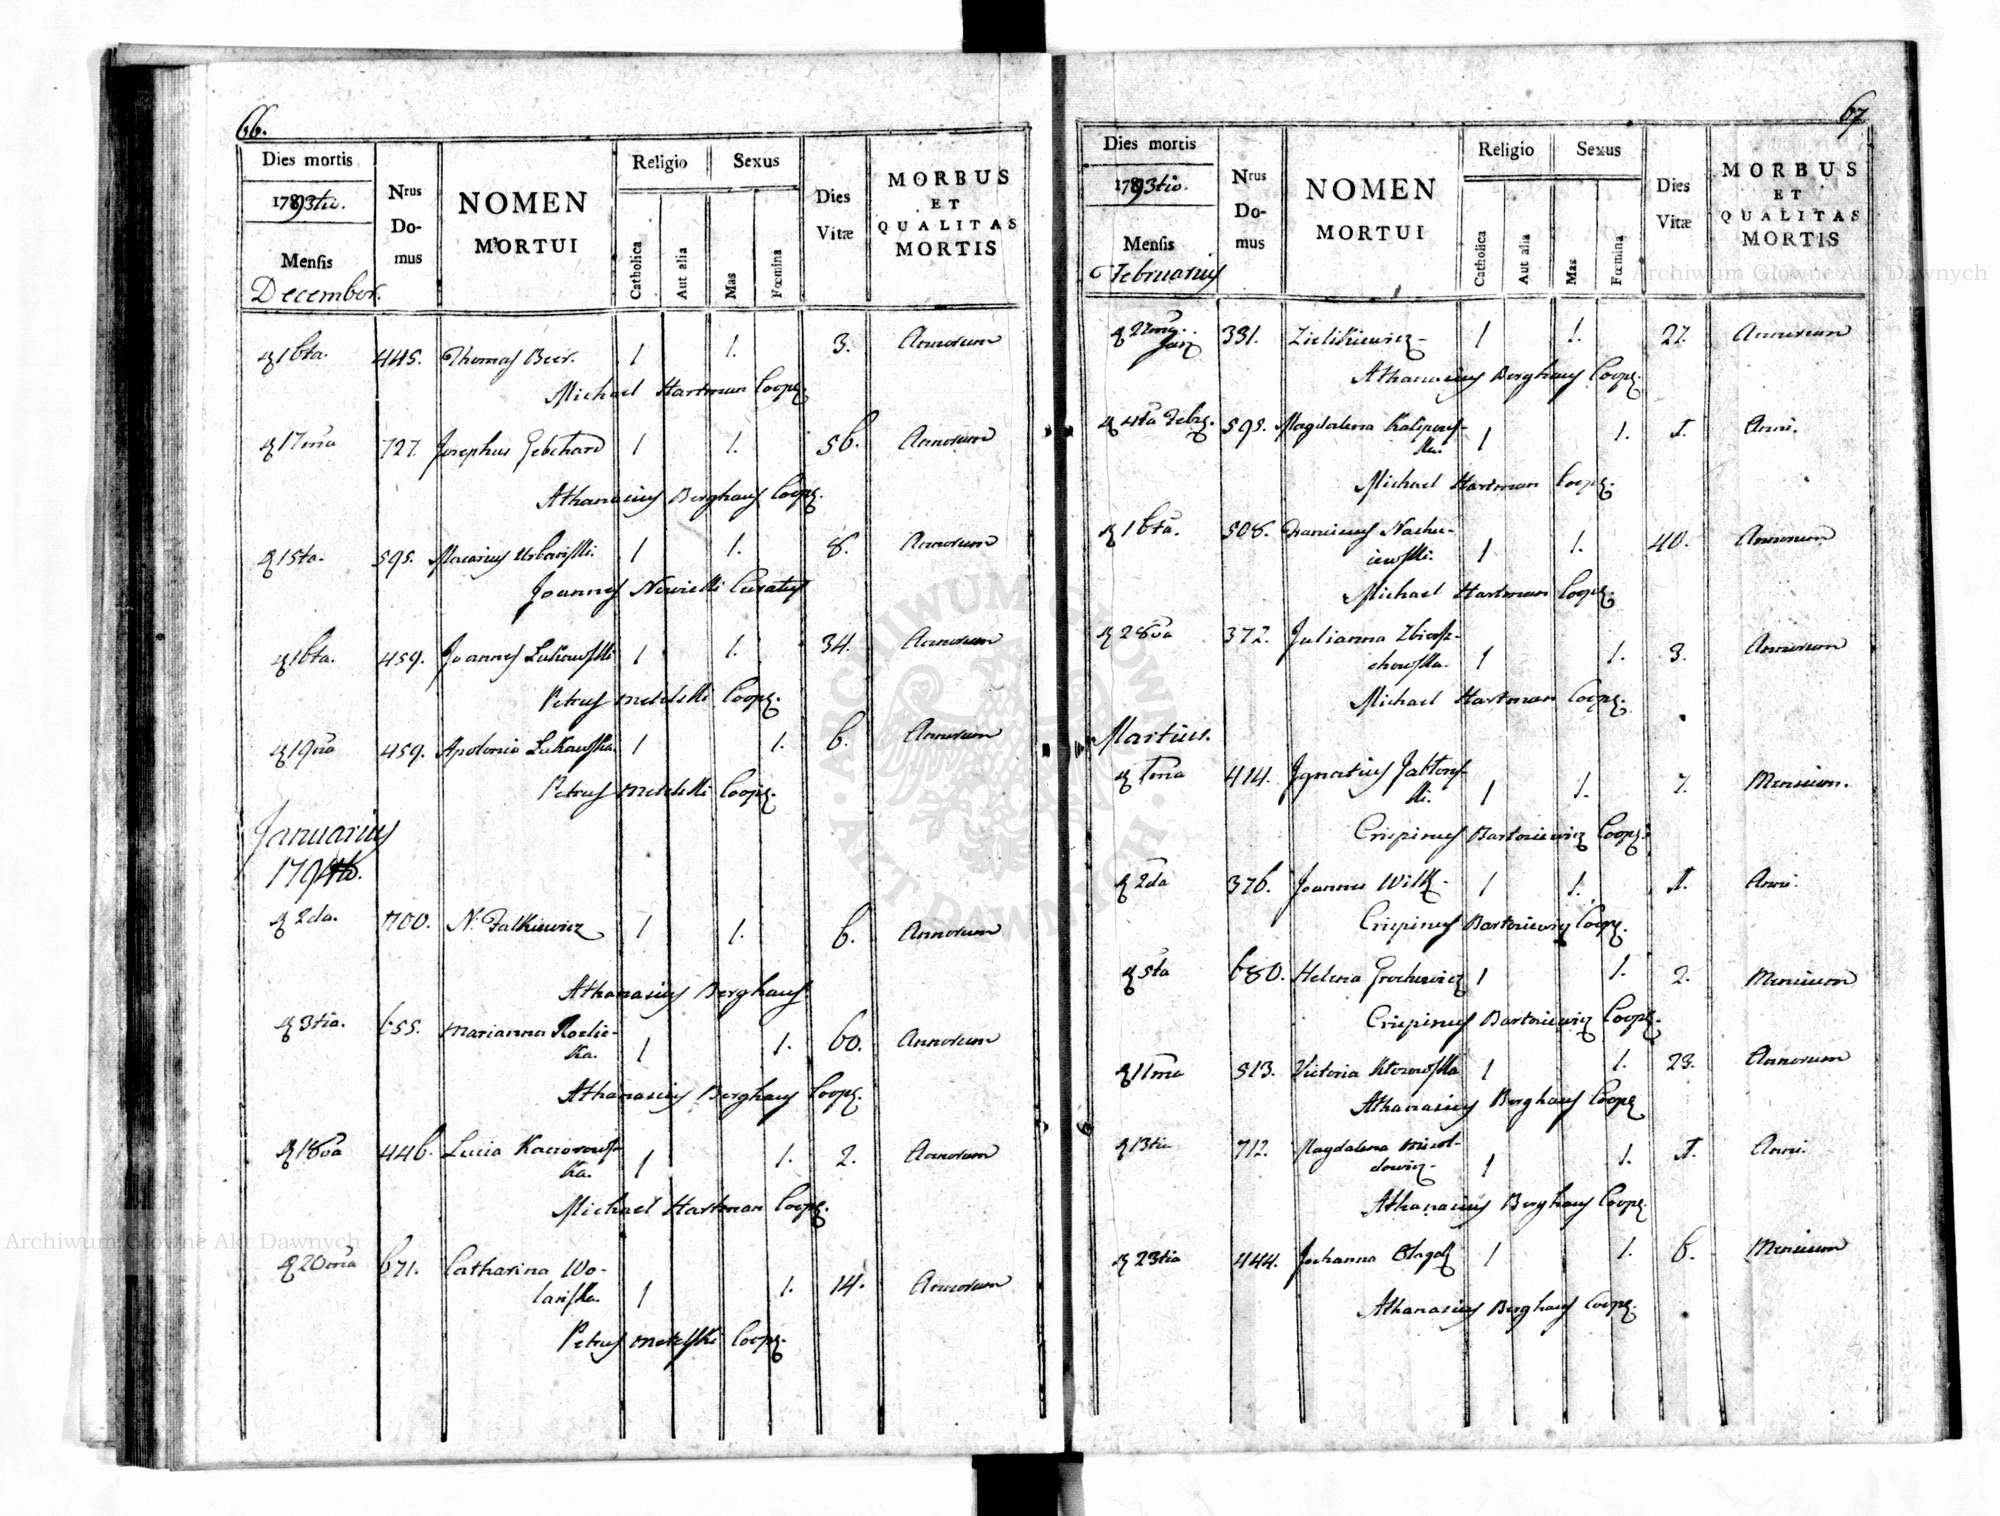 66.
Dies mortis
1793tio.
Mensis
December.
Nrus Domus
NOMEN MORTUI
Religio
Catholica
Aut alia
Sexus
Mas
Fœmina
Dies Vitæ
MORBUS ET QUALITAS MORTIS
16ta. 445. Thomas Beer. 1 1. 3. Annorum
Michael Hartman Coop.
17ma 727. Josephus Gebehard 1 1. 56. Annorum
Athanasius Berghaus Coop.
15ta. 595. Macarius Urbański. 1 1. 8. Annorum
Joannes Nowicki Curatus
16ta. 459. Joannes Lukowski 1 1. 34. Annorum
Petrus Metelski Coop.
19na 459. Apolonia Lukawska. 1 1. 6. Annorum
Petrus Metelski Coop.
Januarius
1794to.
2da. 700. N. Falkiewicz 1 1. 6. Annorum
Athanasius Berghaus
3tia. 655. Marianna
ka. 1 1. 60. Annorum
Athanasius Berghaus Coop.
18va 446. Lucia Kaczorows-
ka. 1 1. 2. Annorum
Michael Hartman Coop.
20ma 671. Catharina Wo-
lańska. 1 1. 14. Annorum
Petrus Metelski Coop.
67
Dies mortis
1793tio.
Mensis
Februarius
Nrus Domus
NOMEN MORTUI
Religio
Catholica
Aut alia
Sexus
Mas
Fœmina
Dies Vitæ
MORBUS ET QUALITAS MORTIS
27ma.
Jan 331. 1 1. 27. Annorum
Athanasius Berghaus Coop.
4ta Febr. 595. Magdalena
1 1. 1. Anni.
Michael Hartman Coop.
16ta. 508.
1 1. 40. Annorum
Michael Hartman Coop.
28va 372. Julianna
chowska. 1 1. 3. Annorum
Michael Hartman Coop.
Martius.
1ma 414. Ignatius Jablons-
ki. 1 1. 7. Mensium.
Crispinus Bartoniewicz Coop.
2da 376. Joannes Wilk 1 1. 1. Anni.
Crispinus Bartoniewicz Coop.
5ta 680. Helena Grochowicz 1 1. 2. Mensium
Crispinus Bartoniewicz Coop.
11ma 513. Victoria 1 1. 23. Annorum
Athanasius Berghaus Coop
13tia 712. Magdalena
dowicz 1 1. 1. Anni.
Athanasius Berghaus Coop.
23tia 444. Johanna 1 1. 6. Mensium
Athanasius Berghaus Coop.
Archiwum Główne Akt Dawnych
Archiwum Główne Akt Dawnych
ARCHIWUM GŁÓWNE
AKT DAWNYCH